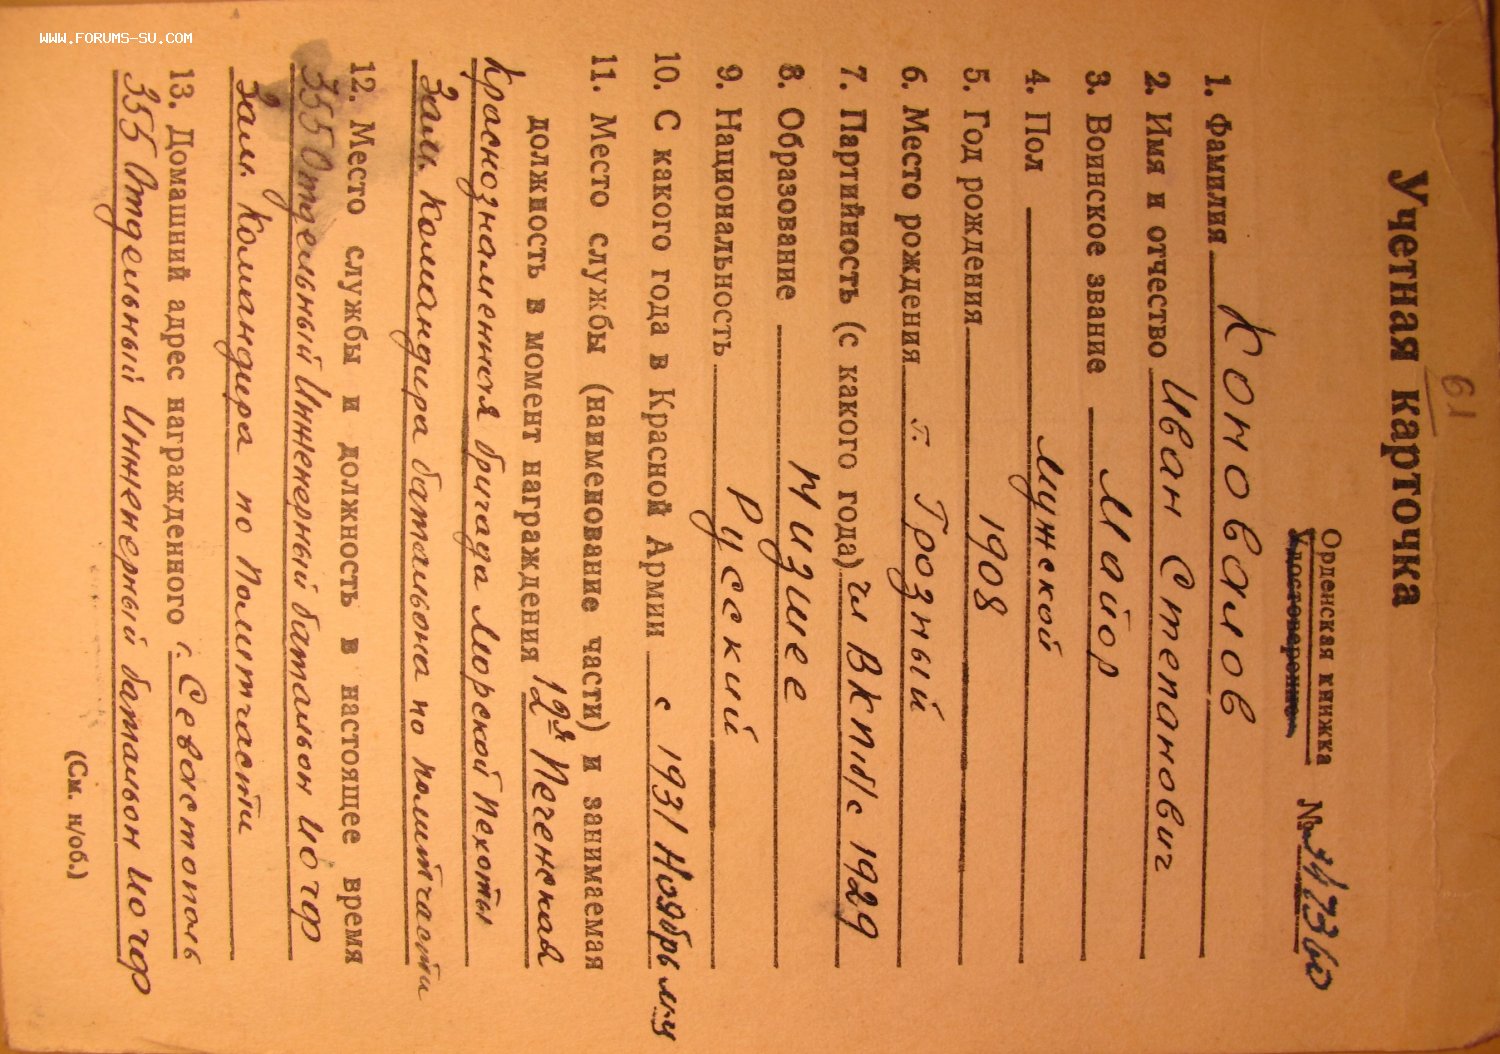 WWW.FORUMS-SU.COM
61
Учетная карточка
Орденская книжка
Удостоверение № 347360
1. Фамилия Коновалов
2. Имя и отчество Иван Степанович
3. Воинское звание Майор
4. Пол мужской
5. Год рождения 1908
6. Место рождения г. Грозный
7. Партийность (с какого года) чл ВКП/б/ с 1929
8. Образование Низшее
9. Национальность Русский
10. С какого года в Красной Армии с 1931 Ноябрь м-ц
11. Место службы (наименование части) и занимаемая
должность в момент награждения 12ая Печенская
Краснознаменная бригада Морской Пехоты
Зам. Командира батальона по политчасти
12. Место службы и должность в настоящее время
355 Отдельный Инженерный батальон ИО ЧФ
зам. Командира по Политчасти
13. Домашний адрес награжденного г. Севастополь
355 Отдельный Инженерный батальон ИО ЧФ
(См. н/об.)